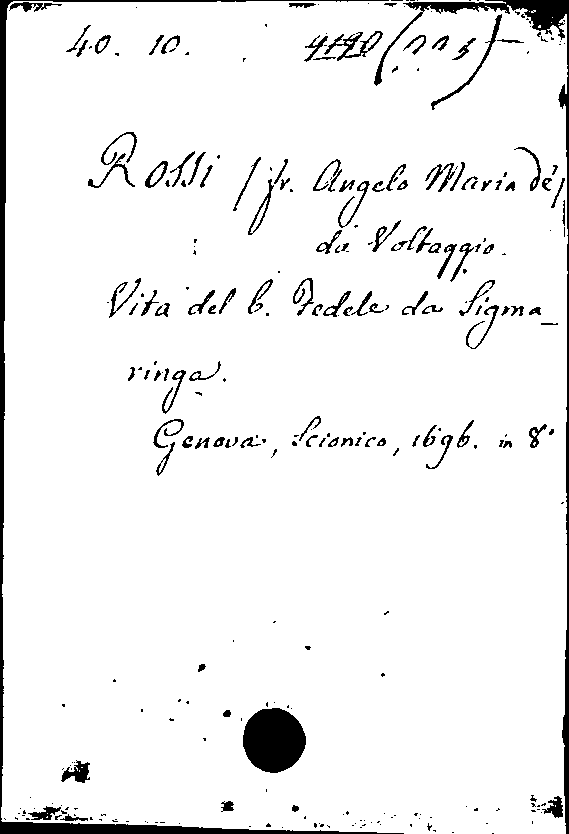 40. 10. 4190 (225)
Rossi / fr. Angelo Maria de'/
da Voltaggio.
Vita del b. Fedele da Sigma_
ringa.
Genova, Scionico, 1696. in 8°